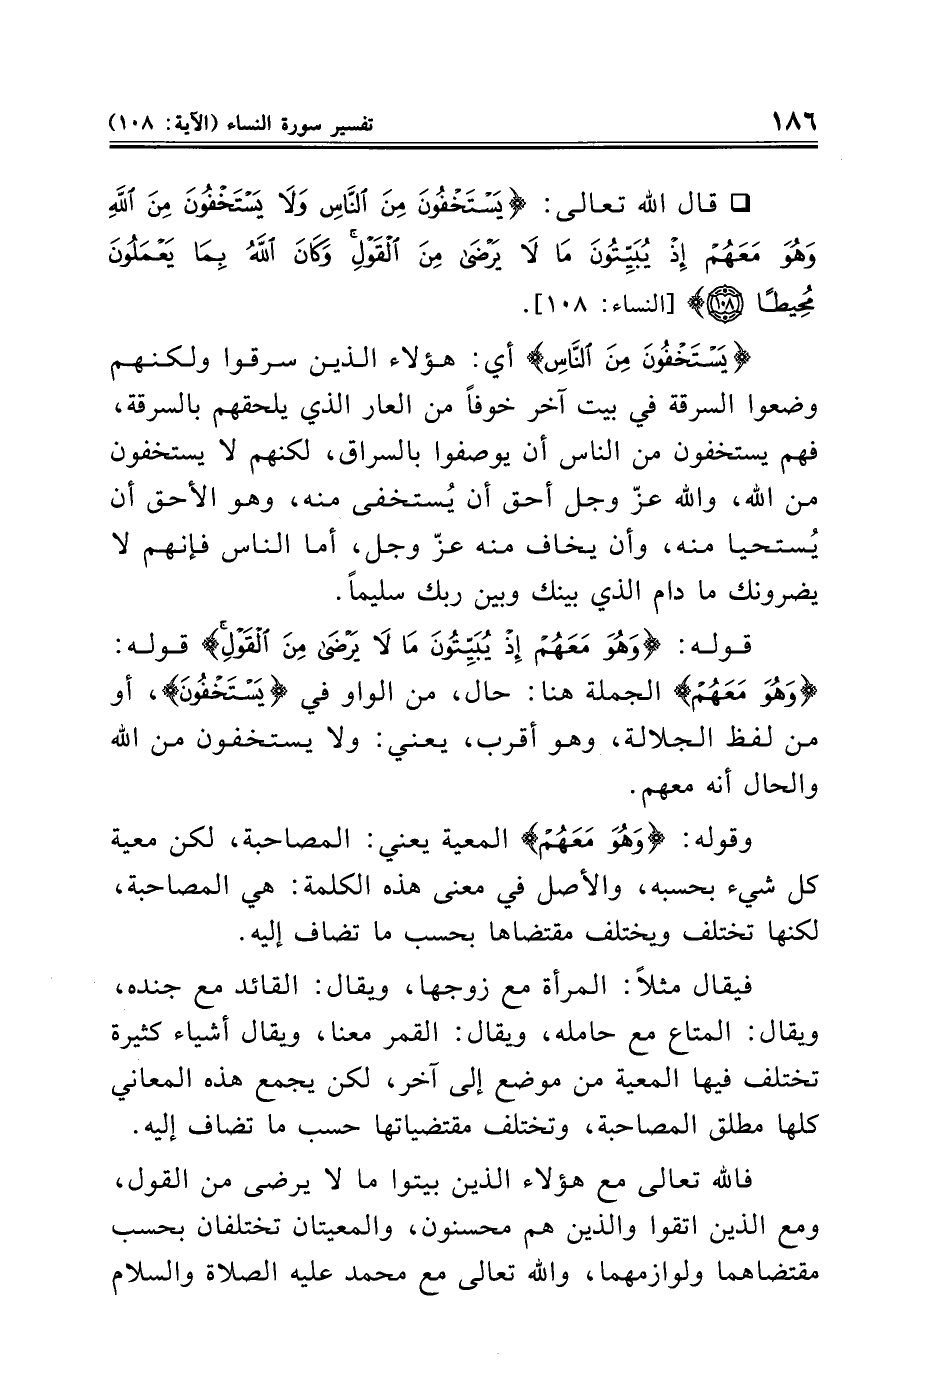 ١٨٦ تفسير سورة النساء (الآية: ١٠٨)
❑ قال الله تعالى: ﴿يَسْتَخْفُونَ مِنَ ٱلنَّاسِ وَلَا يَسْتَخْفُونَ مِنَ ٱللَّهِ
وَهُوَ مَعَهُمْ إِذْ يُبَيِّتُونَ مَا لَا يَرْضَىٰ مِنَ ٱلْقَوْلِ ۚ وَكَانَ ٱللَّهُ بِمَا يَعْمَلُونَ
مُحِيطًا ١٠٨﴾ [النساء: ١٠٨].
﴿يَسْتَخْفُونَ مِنَ ٱلنَّاسِ﴾ أي: هؤلاء الذين سرقوا ولكنهم
وضعوا السرقة في بيت آخر خوفاً من العار الذي يلحقهم بالسرقة،
فهم يستخفون من الناس أن يوصفوا بالسراق، لكنهم لا يستخفون
من الله، والله عزّ وجل أحق أن يُستخفى منه، وهو الأحق أن
يُستحيا منه، وأن يخاف منه عزّ وجل، أما الناس فإنهم لا
يضرونك ما دام الذي بينك وبين ربك سليماً.
قوله: ﴿وَهُوَ مَعَهُمْ إِذْ يُبَيِّتُونَ مَا لَا يَرْضَىٰ مِنَ ٱلْقَوْلِ ۚ﴾ قوله:
﴿وَهُوَ مَعَهُمْ﴾ الجملة هنا: حال، من الواو في ﴿يَسْتَخْفُونَ﴾، أو
من لفظ الجلالة، وهو أقرب، يعني: ولا يستخفون من الله
والحال أنه معهم.
وقوله: ﴿وَهُوَ مَعَهُمْ﴾ المعية يعني: المصاحبة، لكن معية
كل شيء بحسبه، والأصل في معنى هذه الكلمة: هي المصاحبة،
لكنها تختلف ويختلف مقتضاها بحسب ما تضاف إليه.
فيقال مثلاً: المرأة مع زوجها، ويقال: القائد مع جنده،
ويقال: المتاع مع حامله، ويقال: القمر معنا، ويقال أشياء كثيرة
تختلف فيها المعية من موضع إلى آخر، لكن يجمع هذه المعاني
كلها مطلق المصاحبة، وتختلف مقتضياتها حسب ما تضاف إليه.
فالله تعالى مع هؤلاء الذين بيتوا ما لا يرضى من القول،
ومع الذين اتقوا والذين هم محسنون، والمعيتان تختلفان بحسب
مقتضاهما ولوازمهما، والله تعالى مع محمد عليه الصلاة والسلام